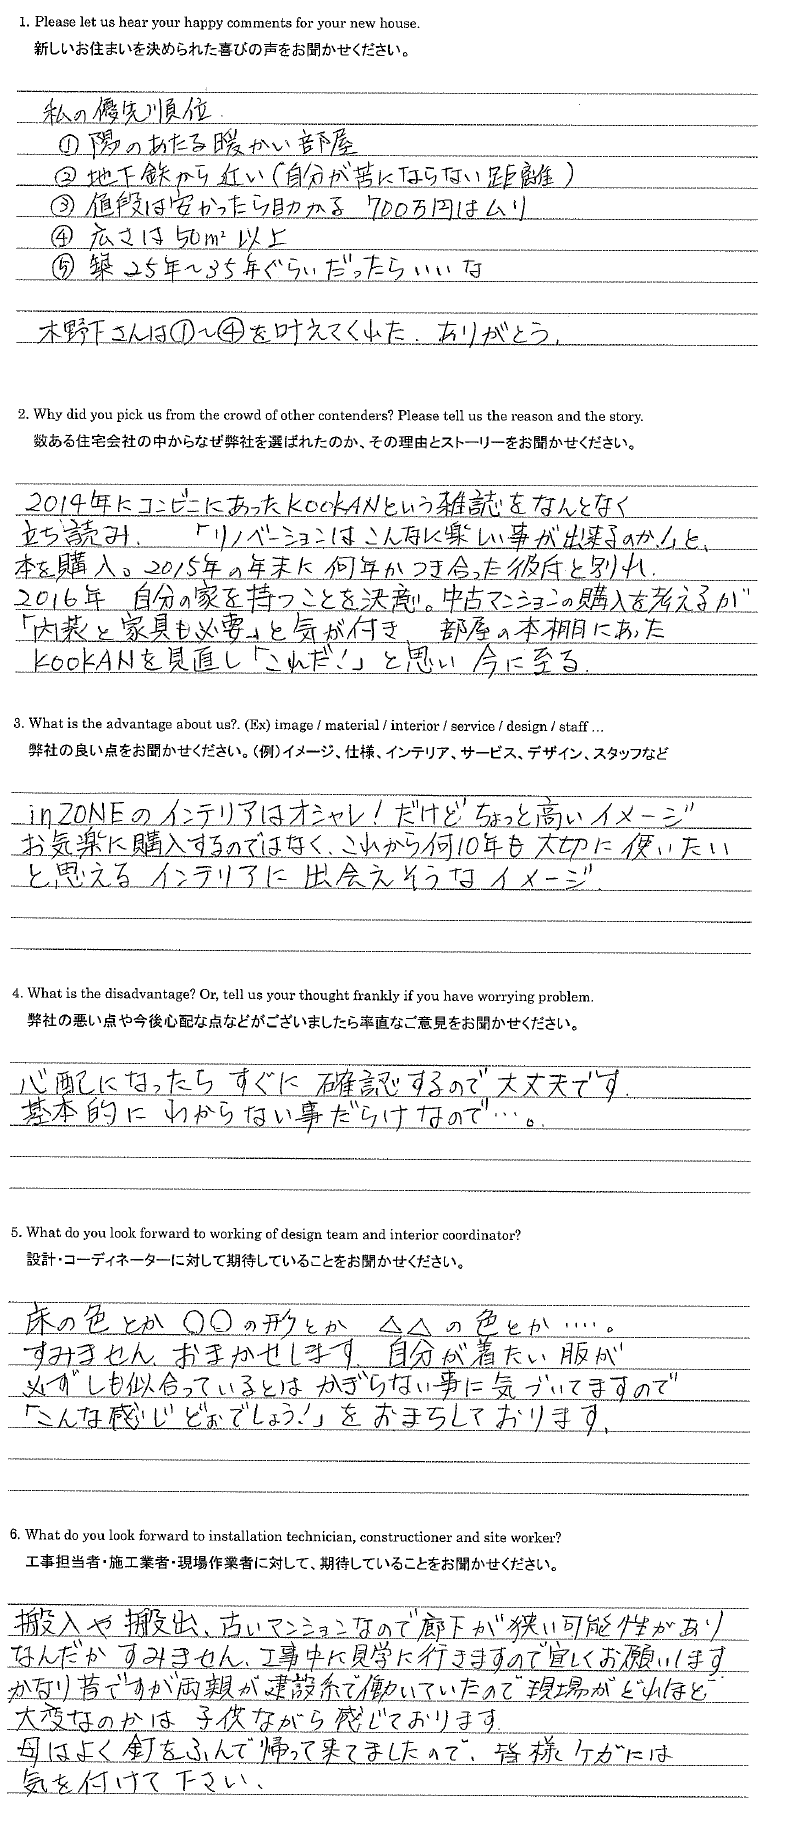 1. Please let us hear your happy comments for your new house.
新しいお住まいを決められた喜びの声をお聞かせください。
私の優先順位
① 陽のあたる暖かい部屋
② 地下鉄から近い(自分が苦にならない距離)
③ 値段は安かったら助かる 700万円はムリ
④ 広さは50m²以上
⑤ 築25年〜35年ぐらいだったらいいな
木野下さんは①〜④を叶えてくれた. ありがとう.
2. Why did you pick us from the crowd of other contenders? Please tell us the reason and the story.
数ある住宅会社の中からなぜ弊社を選ばれたのか、その理由とストーリーをお聞かせください。
2014年にコンビニにあったKooKANという雑誌をなんとなく
立ち読み. 「リノベーションはこんなに楽しい事が出来るのか!」と、
本を購入。2015年の年末に何年かつき合った彼氏と別れ.
2016年 自分の家を持つことを決意。中古マンションの購入を考えるが
「内装と家具も必要」と気が付き、部屋の本棚にあった
KooKANを見直し「これだ!」と思い今に至る.
3. What is the advantage about us?. (Ex) image / material / interior / service / design / staff ...
弊社の良い点をお聞かせください。(例)イメージ、仕様、インテリア、サービス、デザイン、スタッフなど
inZONEのインテリアはオシャレ!だけどちょっと高いイメージ
お気楽に購入するのではなく、これから何10年も大切に使いたい
と思えるインテリアに出会えそうなイメージ.
4. What is the disadvantage? Or, tell us your thought frankly if you have worrying problem.
弊社の悪い点や今後心配な点などがございましたら率直なご意見をお聞かせください。
心配になったらすぐに確認するので大丈夫です.
基本的にわからない事だらけなので…。
5. What do you look forward to working of design team and interior coordinator?
設計・コーディネーターに対して期待していることをお聞かせください。
床の色とか ○○の形とか △△の色とか…..。
すみません、おまかせします. 自分が着たい服が
必ずしも似合っているとはかぎらない事に気づいてますので
「こんな感じどぉでしょう!」をおまちしております.
6. What do you look forward to installation technician, constructioner and site worker?
工事担当者・施工業者・現場作業者に対して、期待していることをお聞かせください。
搬入や搬出、古いマンションなので廊下が狭い可能性があり
なんだかすみません、工事中に見学に行きますので宜しくお願いします
かなり昔ですが両親が建設系で働いていたので現場がどれほど
大変なのかは子供ながら感じております
母はよく釘をふんで帰って来てましたので、皆様ケガには
気を付けて下さい、